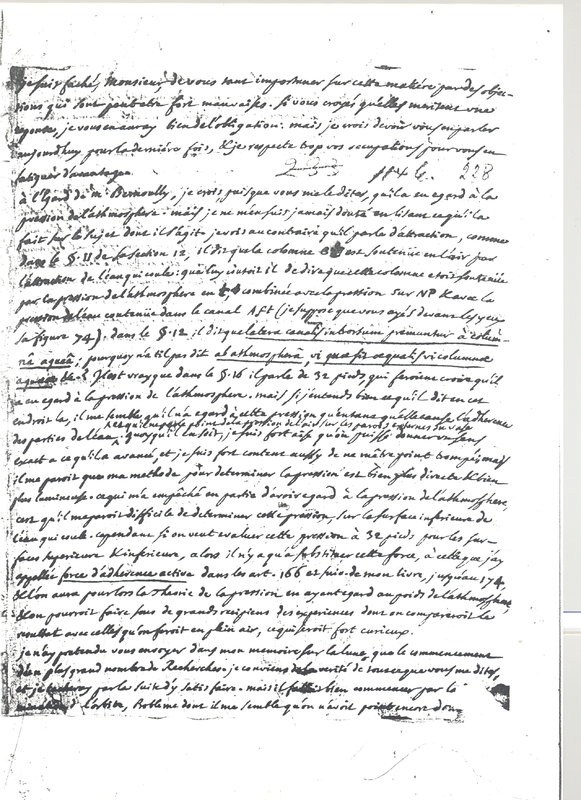 je suis faché, Monsieur, de vous tant importuner sur cette matiére par des objec-
tions qui sont peutetre fort mauvaises. Si vous croyés qu'elles meritent une
reponse, je vous en auray bien de l'obligation: mais je crois devoir vous en parler
aujourd'huy pour la derniére fois, & je respecte trop vos occupations pour vous en
fatiguer d'avantage.
238
à l'Egard de m. Bernoully, je crois, puisque vous me le dites, qu'il a eu egard à la
pression de l'athmosphere: mais je ne m'en suis jamais douté en lisant ce qu'il a
fait sur le sujet dont il s'agit. je vois au contraire qu'il parle d'attraction, comme
dans le §. 11 de la section 12, il dit que la colomne est soutenüe en l'air par
l'attraction de l'eau qui coule: que luy coutoit il de dire que cette colomne etoit soutenüe
par la pression de l'athmosphere en combinée avec la pression sur NP & avec la
pression de l'eau contenüe dans le canal (je suppose que vous ayés devant les yeux
sa figure 74). dans le §. 12, il dit que latera canalis introrsum premuntur à colum-
nâ aqueâ; pourquoy n'a t'il pas dit ab athmospherâ vi quæ sit æqualis vi columnæ
aqueæ &c. Il est vray que dans le §. 16 il parle de 32 pieds qui feroient croire qu'il
a eu egard à la pression de l'athmosphere. mais si j'entends bien ce qu'il dit en cet
endroit la, il me semble qu'il n'a egard à cette pression qu'entant qu'elle cause l'adherence
des parties de l'eau, & qu'il ne parle point de la pression de l'air sur les parois externes du vase
quoy qu'il en soit, je suis fort aise qu'on puisse donner un sens
exact a ce qu'il a avancé, et je suis fort content aussy de ne m'être point trompé; mais
il me paroit que ma methode pour determiner la pression est bien plus directe & bien
plus lumineuse. ce qui m'a empêché en partie d'avoir egard à la pression de l'athmosphere,
c'est qu'il me paroit difficile de determiner cette pression, sur la surface inférieure de
l'eau qui coule. cependant si on veut evaluer cette pression à 32 pieds pour les sur-
faces superieure & inférieure, alors il n'y a qu'à substituer cette force, à celle que j'ay
appellée force d'adhérence active dans les art. 166 et suiv. de mon livre, jusqu'au 174,
& l'on aura pour lors la Theorie de la pression en ayant egard au poids de l'athmosphere,
& on pourroit faire sous de grands recipiens des experiences dont on compareroit le
resultat avec celles qu'on feroit en plein air, ce qui seroit fort curieux.
je n'ay pretendu vous envoyer dans mon memoire sur la lune, que le commencement
d'un plus grand nombre de Recherches. je conviens de la verité de tout ce que vous me dites,
et je tacheray par la suite d'y satisfaire. mais il falloit bien commencer par le
l'orbite, Problême dont il me semble qu'on n'avoit point encore donné